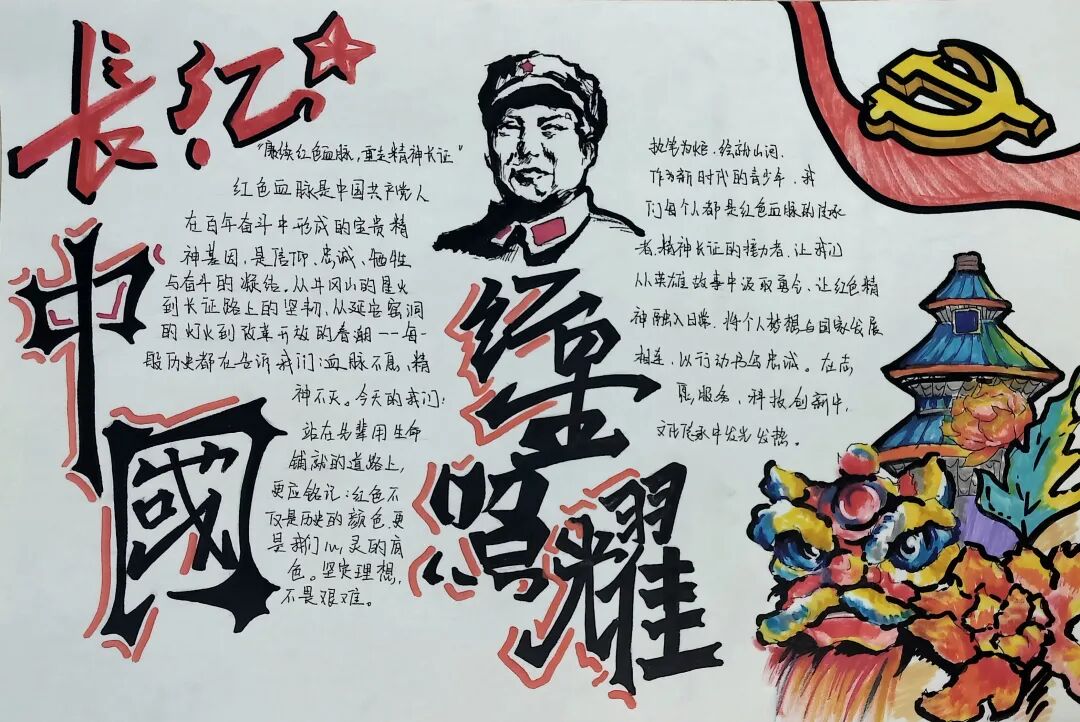 长红
中國
“赓续红色血脉,重走精神长征”
红色血脉是中国共产党人
在百年奋斗中形成的宝贵精
神基因,是信仰、忠诚、牺牲
与奋斗的凝结。从井冈山的星火
到长征路上的坚韧,从延安窑洞
的灯火到改革开放的春潮——每一
段历史都在告诉我们:血脉不息,精
神不灭。今天的我们:
站在先辈用生命
铺就的道路上,
更应铭记:红色不
仅是历史的颜色,更
是我们心灵的底
色。坚定理想,
不是艰难。
红星
照耀
执笔为炬,绘就山河。
作为新时代的青少年,我
们每个人都是红色血脉的传承
者,精神长征的接力者,让我们
从英雄故事中汲取勇气,让红色精
神融入日常,将个人梦想与国家发展
相连,以行动书写忠诚。在志
愿服务、科技创新中,
文化传承中发光发热。